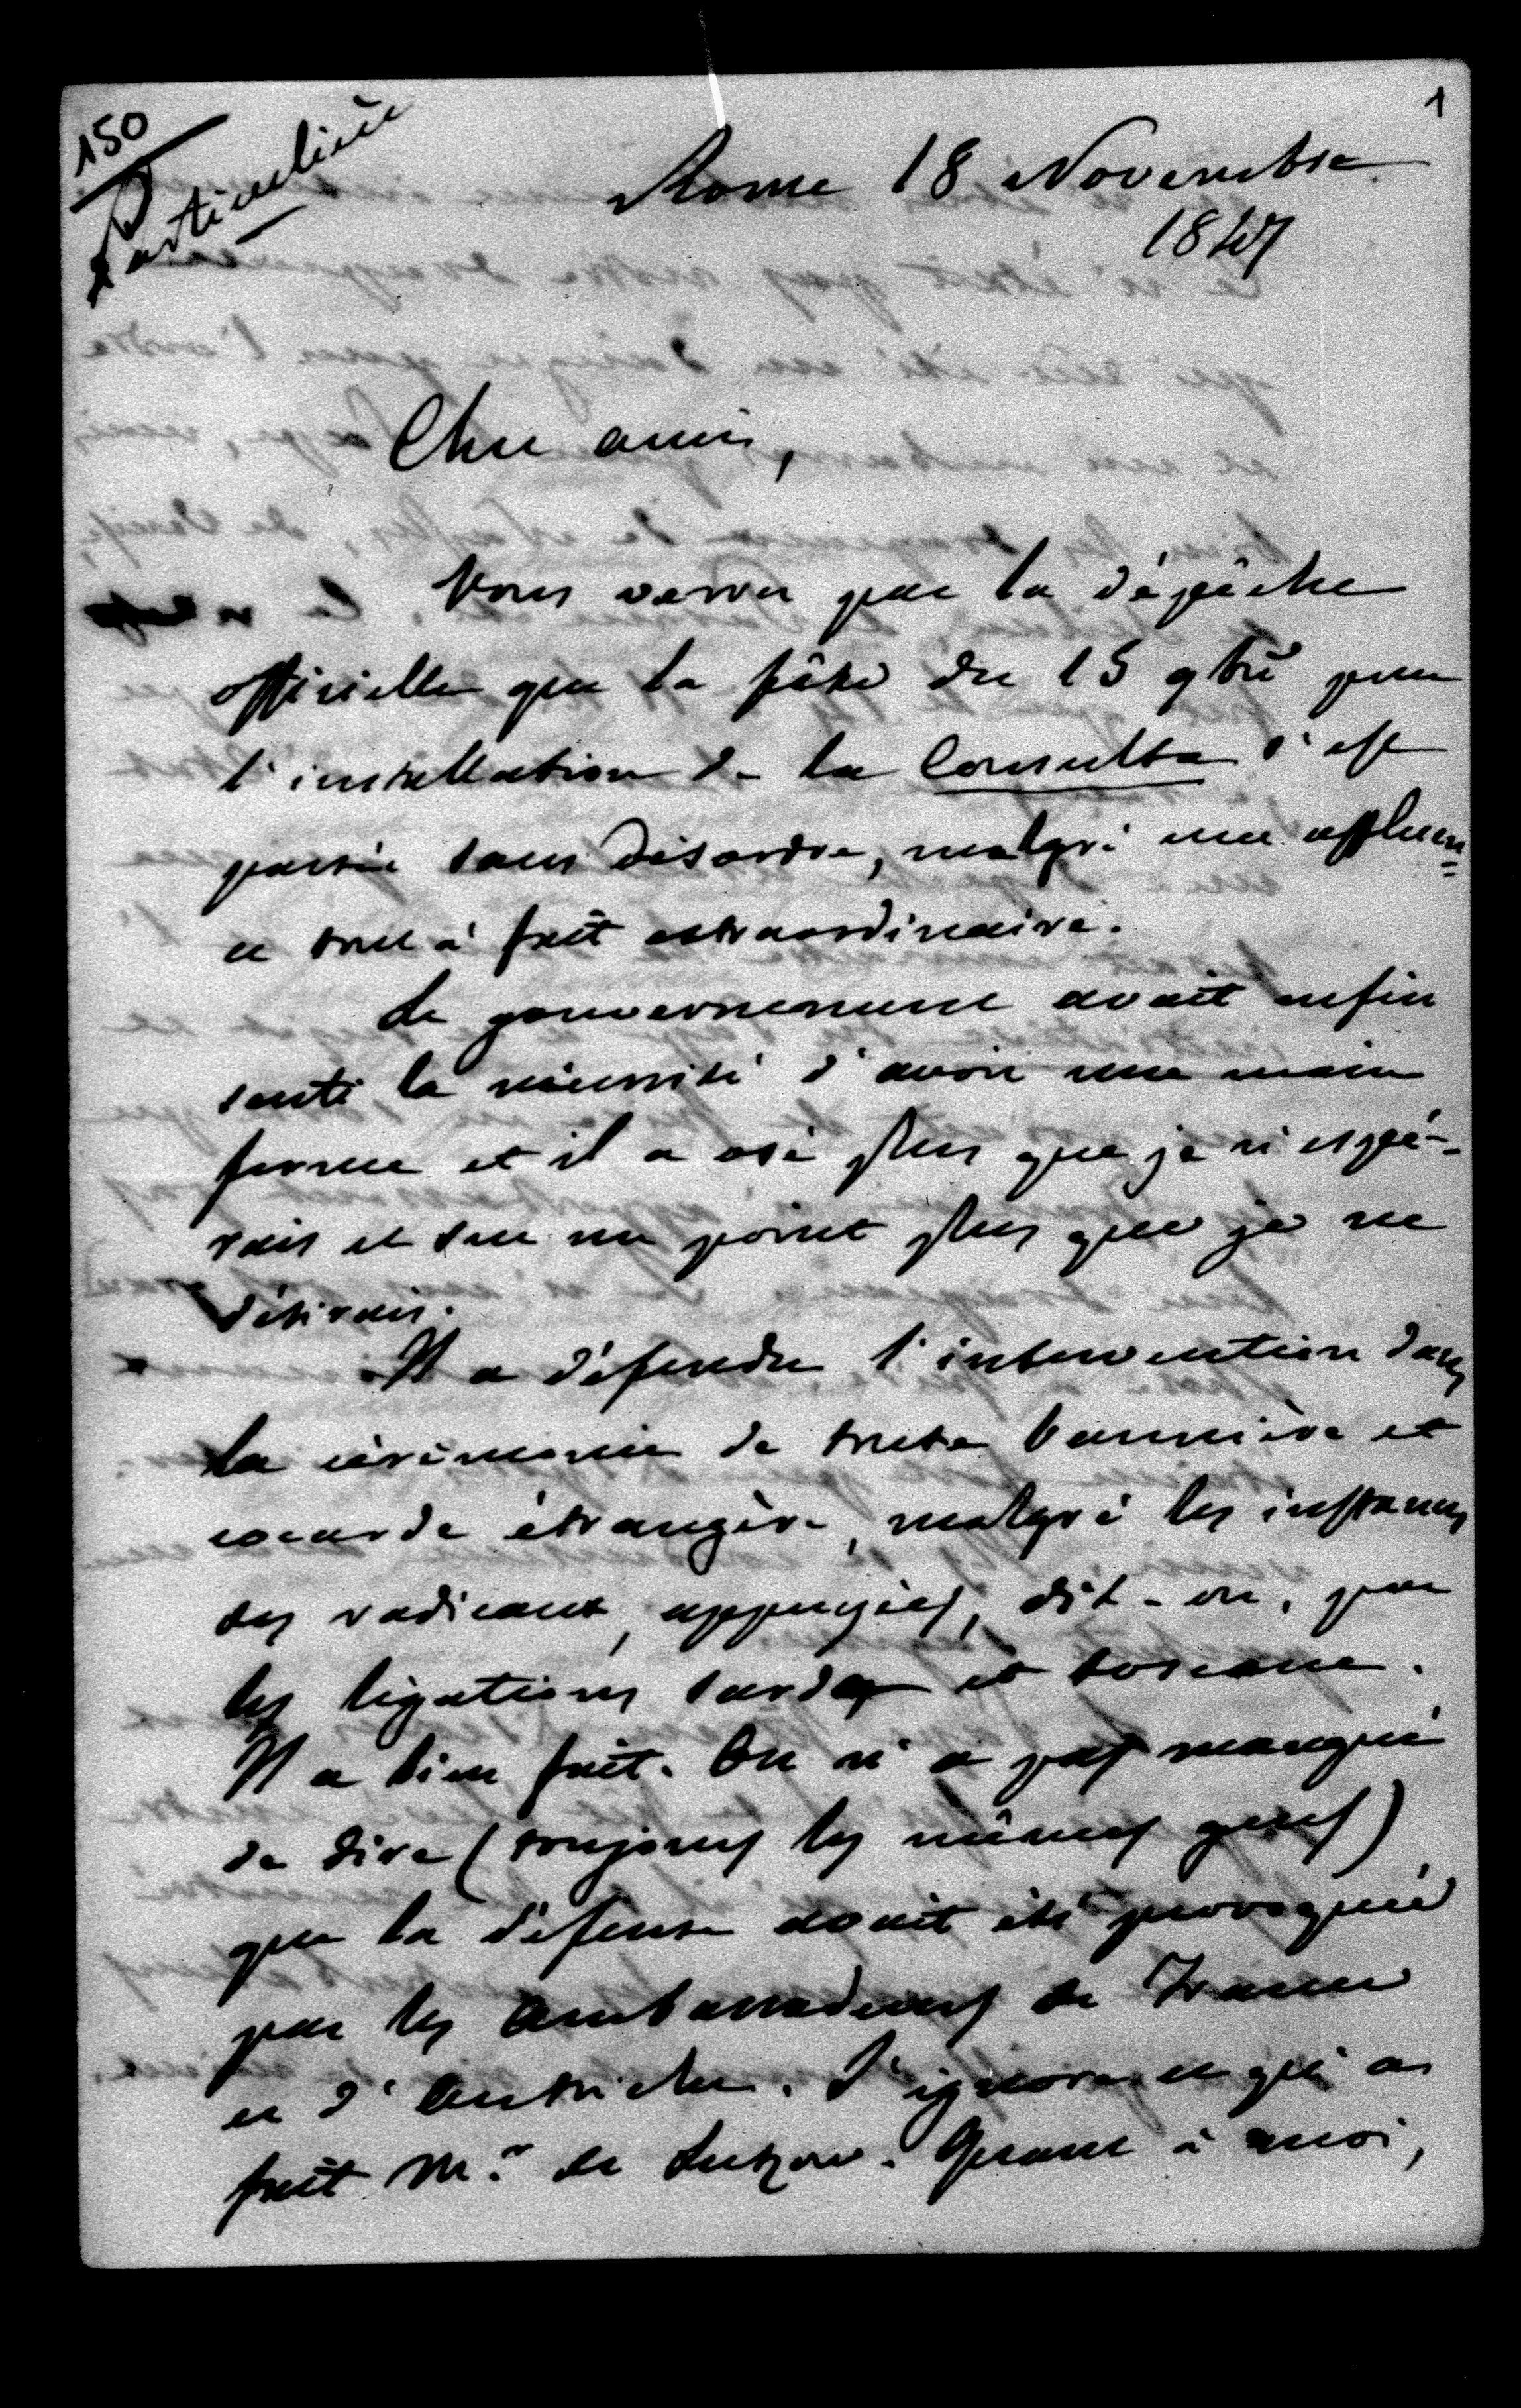 150
1
Particulière
Rome 18 Novembre
1847
Cher ami,
Vous verrez par la dépêche
officielle que la fête du 15 9bre pour
l'installation de la Consulta s'est
passée sans désordre, malgré une affluen=
ce tout à fait extraordinaire.
Le gouvernement avait enfin
senti la nécessité d'avoir une main
ferme et il a osé plus que je n'espé-
rais et sur un point plus que je ne
désirais.
Il a défendu l'intervention dans
la cérémonie de toute bannière et
cocarde étrangère, malgré les instances
des radicaux, appuyés, dit-on, par
les légations sarde et toscane.
Il a bien fait. On n'a pas manqué
de dire (toujours les mêmes gens)
que la défense avait été provoquée
par les Ambassadeurs de France
et d'Autriche. J'ignore ce qu'a
fait Mr. de Lutzow. Quant à moi,